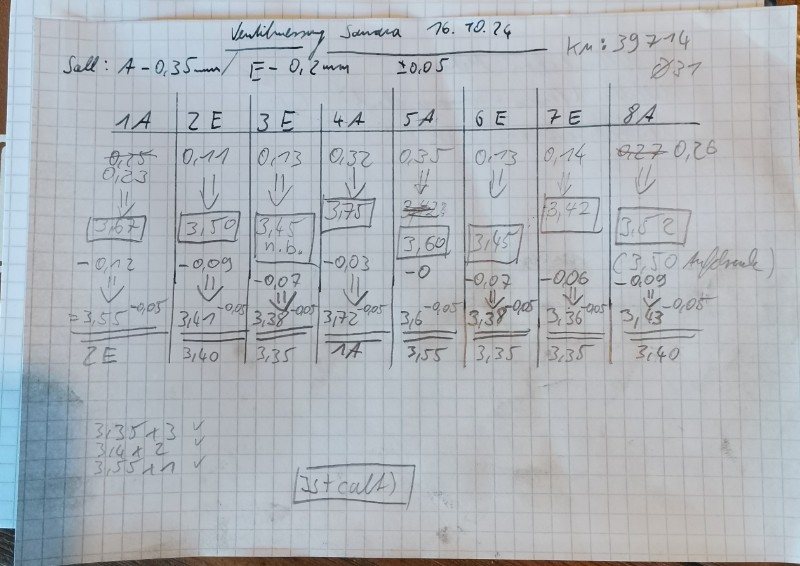 Ventilmessung Sandra 16.10.24
Km: 39714
Soll: A - 0,35mm/ E - 0,2mm ±0,05
Ø31
1A 2E 3E 4A 5A 6E 7E 8A
0,25 0,11 0,13 0,32 0,35 0,13 0,14 0,27 0,26
0,23
3,67 3,50 3,45 3,75 3,60 3,45 3,42 3,52
n.b.
(3,50 Aufdruck)
-0,12 -0,09 -0,07 -0,03 -0 -0,07 -0,06 -0,09
=3,55-0,05 3,41-0,05 3,38-0,05 3,72-0,05 3,6-0,05 3,38-0,05 3,36-0,05 3,43-0,05
2E 3,40 3,35 1A 3,55 3,35 3,35 3,40
3,35 x 3 ✓
3,4 x 2 ✓
3,55 x 1 ✓
Ist (alt)